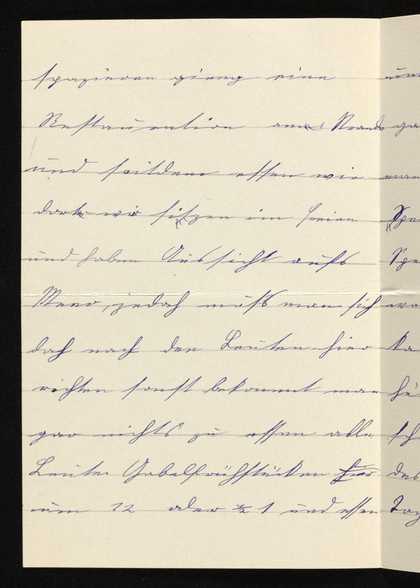 spazieren gieng eine
Restauration am Strande
und seitdem essen wir
dort wir sitzen im freien
und haben Aussicht aufs
Meer, jedoch muß man sich
doch nach den Leuten hier
richten sonst bekommt man
gar nichts zu essen alle
Leute Gabelfrühstücken hier
um 12 oder ½ 1 und essen